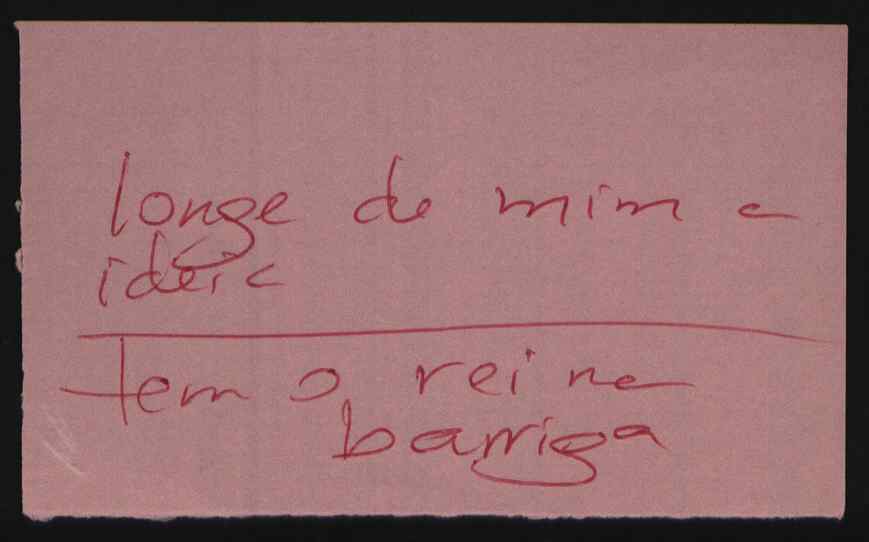 longe de mim a
idéia
tem o rei na
barriga